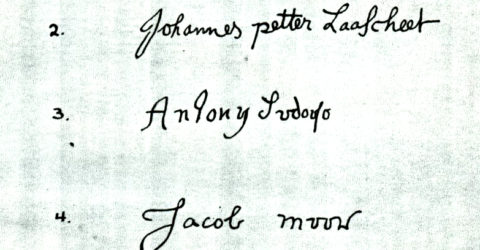 2. Johannes petter Laascheet
3. Antony
4. Jacob moor